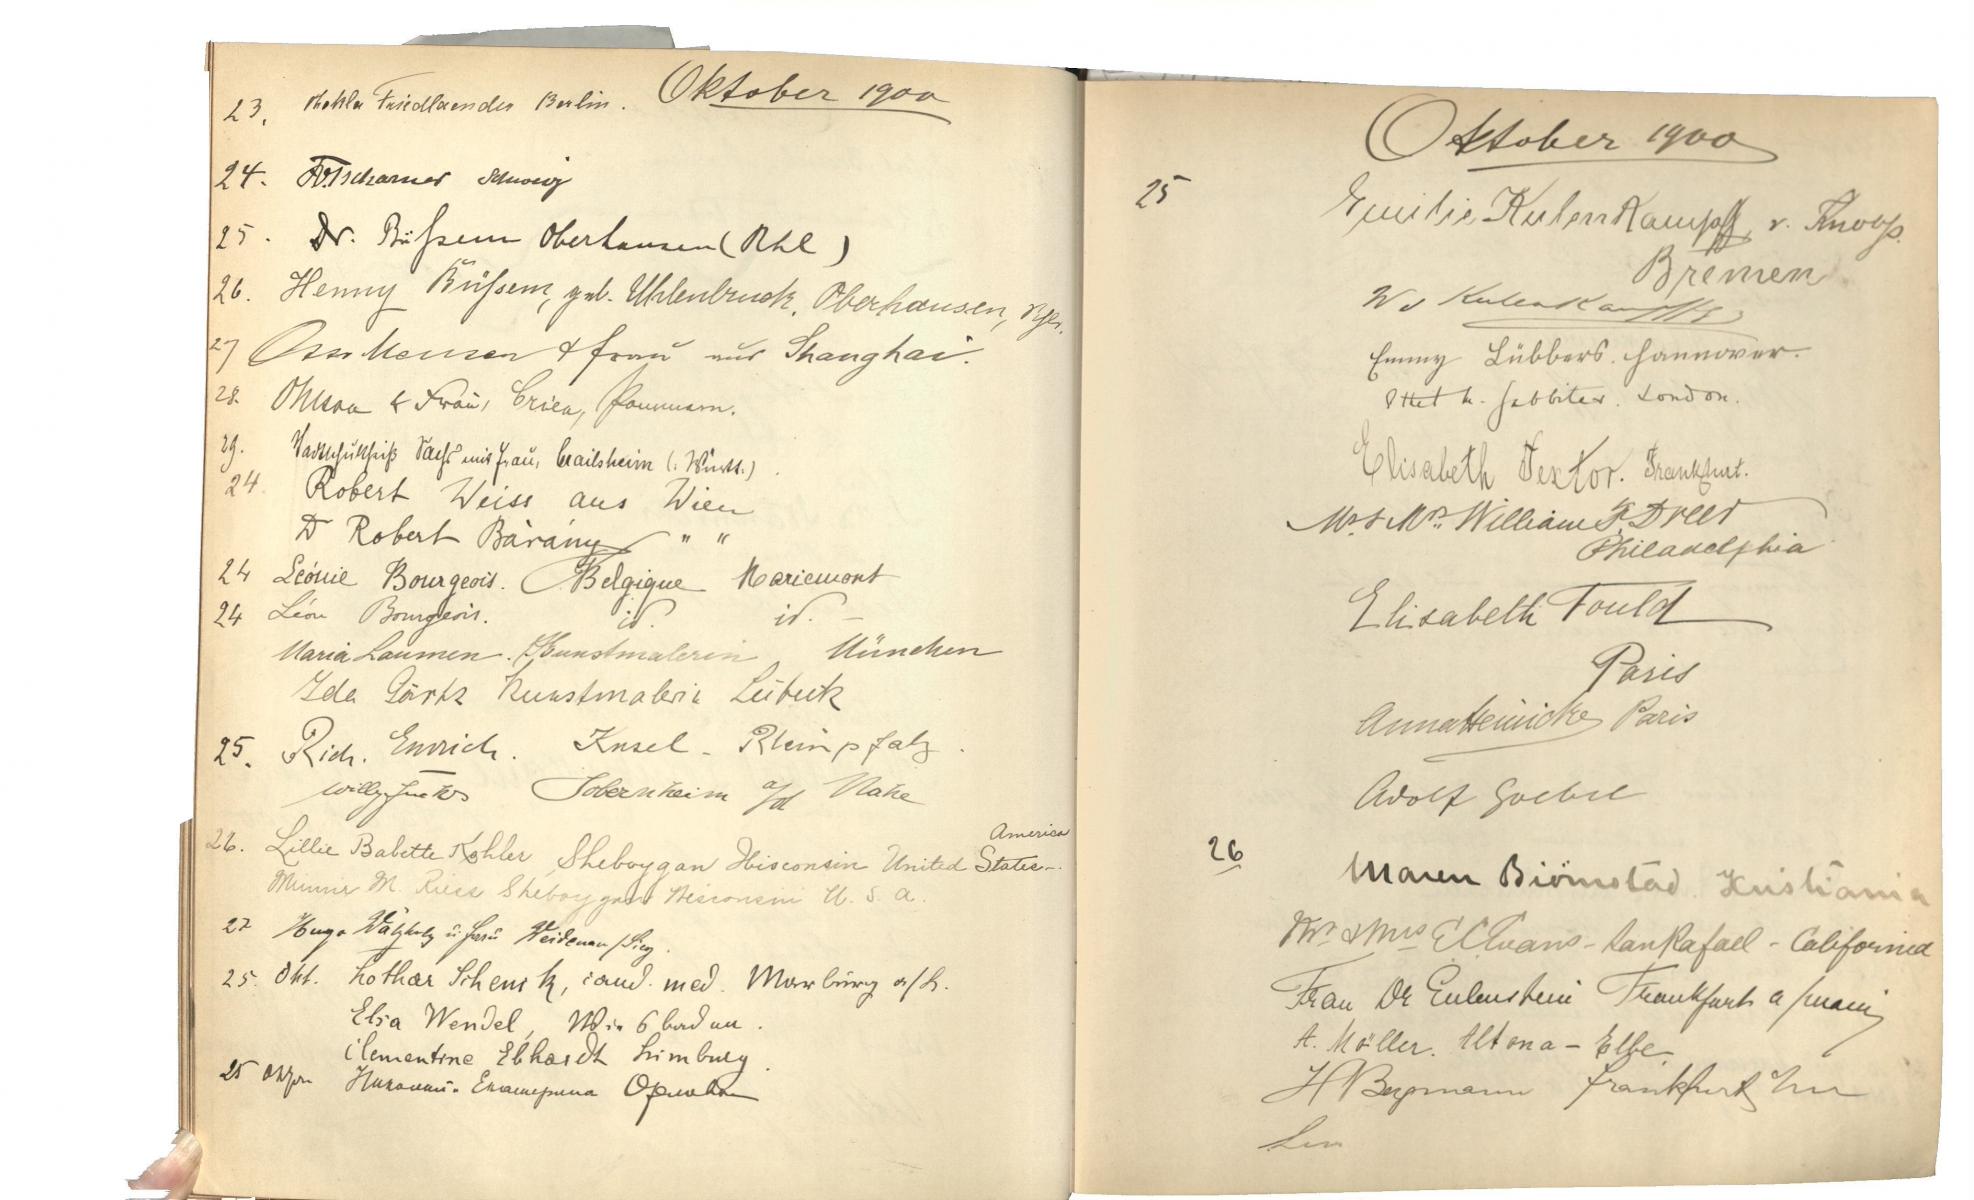 Oktober 1900
23. Friedlaender Berlin.
24. Tscharner Schweiz
25. Dr. Büssem Oberhausen (Rhl)
26. Henny Büssem, geb. Uhlenbruck, Oberhausen, Rhl.
27 & Frau aus Shanghai.
28. & Frau,
29. Stadtschultheiß Sachs mit Frau, Crailsheim (: Württ.)
24 Robert Weiss aus Wien
Dr Robert Bárány " "
24 Léonie Bourgeois. Belgique Mariemont
24 Léon Bourgeois. id. id. –
Maria Laumen. Kunstmalerin München
Ida Görtz Kunstmalerin Lübeck
25. Rich. Emrich. Kusel – Rheinpfalz.
Willy Sobernheim a/d Nahe
America
26. Lillie Babette Kohler, Sheboygan Wisconsin United States –.
Minnie M. Riess Sheboygan Wisconsin U. S. A.
27 Hugo u. Frau Weidenau/Sieg.
25. Okt. Lothar Schenck, cand. med. Marburg a/L.
Elsa Wendel, Wiesbaden.
Clementine Ebhardt Limburg.
25 Николай и Екатерина
Oktober 1900
25 Emilie Kulenkampff, v. Knoop.
Bremen
W v Kulenkampff
Emmy Lübbers. Hannover.
London.
Elisabeth Textor. Frankfurt.
Mr & Mrs. William F. Dreer
Philadelphia
Elisabeth Fould
Paris
Anna Heinicke Paris
Adolf Goebel
26 Maren Biörnstad Kristiania
Mr & Mrs E C Evans – San Rafael – California
Frau Dr Eulenstein Frankfurt a/Main
A. Möller. Altona – Elbe.
H Bergmann Frankfurt